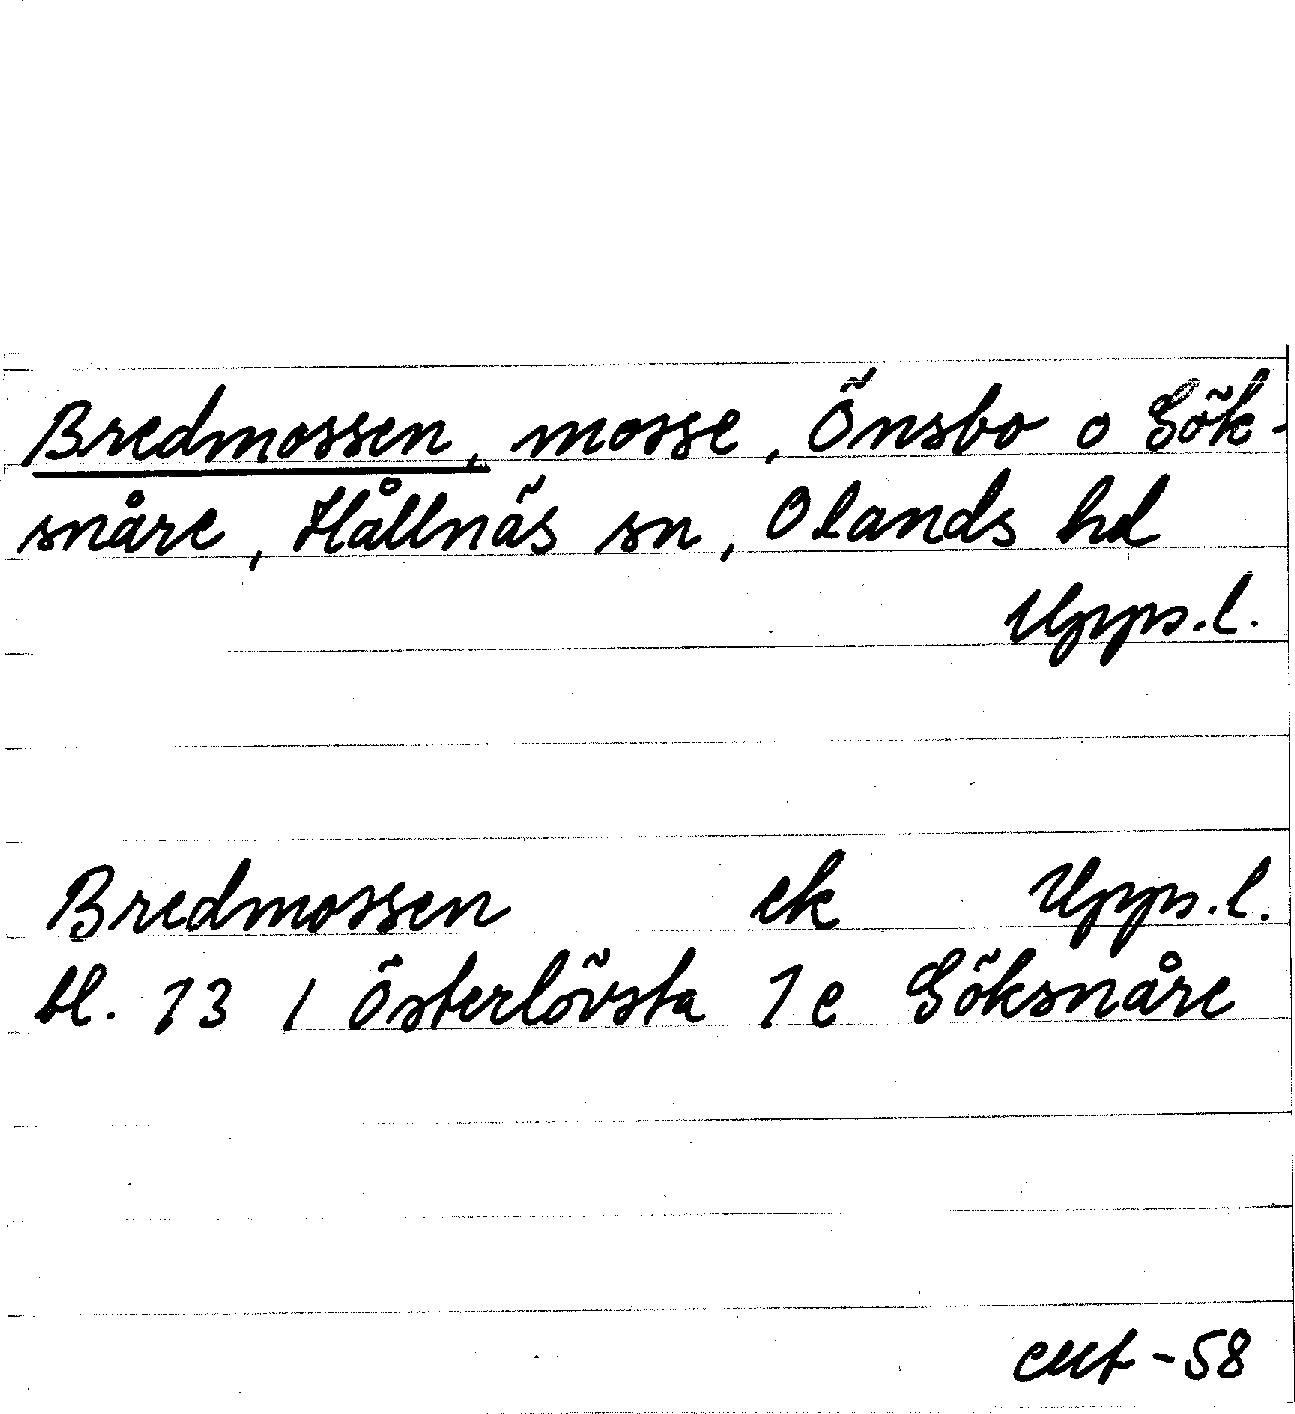 Bredmossen, mosse, Önsbo o Sök-
snåre, Hållnäs sn, Olands hd
Upps.l.
Bredmossen ek Upps.l.
bl. 13 / Österlövsta 1 e Söksnåre
-58